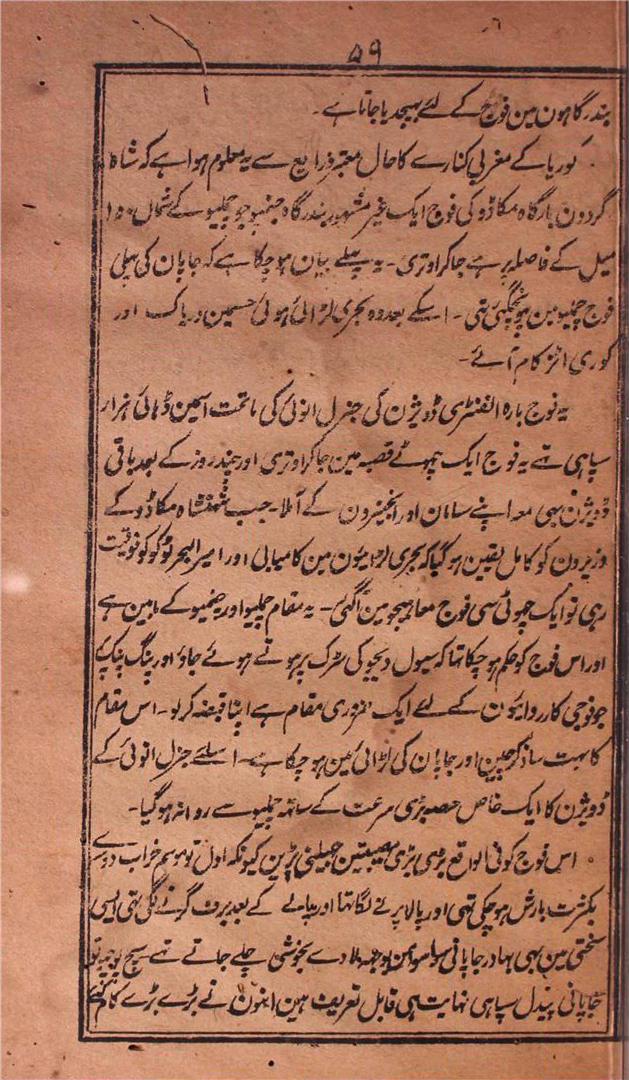 ۵۹
بندرگاہون مین فوج کے لئے بھیجدیا جاتا ہے۔
کوریا کے مغربی کنارے کا حال معتبر ذرایع سے یہ معلوم ہوا ہے کہ شاہ
گردون بارگاہ مکاڈو کی فوج ایک غیر مشہور بندرگاہ جنمپو جو چملپو کے شمال ۱۵۰
میل کے فاصلہ پر ہے جاکر اوتری۔ یہ پہلے بیان ہو چکا ہے کہ جاپان کی پہلی
فوج چملپو مین پہونچگئی تہی۔ اسکے بعد وہ بحری لڑائی ہوئی جسمین وریاگ اور
کوری اٹز کام آئے۔
یہ فوج بارہ انفنٹری ڈویژن کی جنرل انوئی کی ماتحت اسمین ڈہائی ہزار
سپاہی تہے یہ فوج ایک چہوٹے قصبہ مین جاکر اوتری اور چند روز کے بعد باقی
ڈویژن بہی معہ اپنے سامان اور انجنیرون کے آملا۔ جب شہنشاہ مکاڈو کے
وزیرون کو کامل یقین ہوگیا کہ بحری لڑائیون مین کامیابی اور امیر البحر ٹوگو کو فوقیت
رہی تو ایک چھوٹی سی فوج معاہیجو مین آگئی۔ یہ مقام چملپو اور جنمپو کے مابین ہے
اور اس فوج کو حکم ہو چکا تہا کہ سیول ویجو کی سڑک پر ہوتے ہوئے جاؤ اور پنگ ینگ پر
جو فوجی کارروائیون کے لئے ایک ضروری مقام ہے اپنا قبضہ کرلو۔ اس مقام
کا بہت سا ذکر چین اور جاپان کی لڑائی مین ہو چکا ہے۔ اسلئے جنرل انوئی کے
ڈویژن کا ایک خاص حصہ بڑی سرعت کے ساتہہ چملپو سے روانہ ہوگیا۔
اس فوج کو فی الواقع بڑی بڑی مصیبتین جھیلنی پڑین کیونکہ اول تو موسم خراب دوسرے
بکثرت بارش ہو چکی تہی اور پالا پڑنے لگا تہا اور پالے کے بعد برف گرنے لگی تہی ایسی
سختی مین بہی بہادر جاپانی بوجہہ لادے بخوشی چلے جاتے تہے سچ پوچہو تو
جاپانی پیدل سپاہی نہایت ہی قابل تعریف ہین انہون نے بڑے بڑے کام کئے